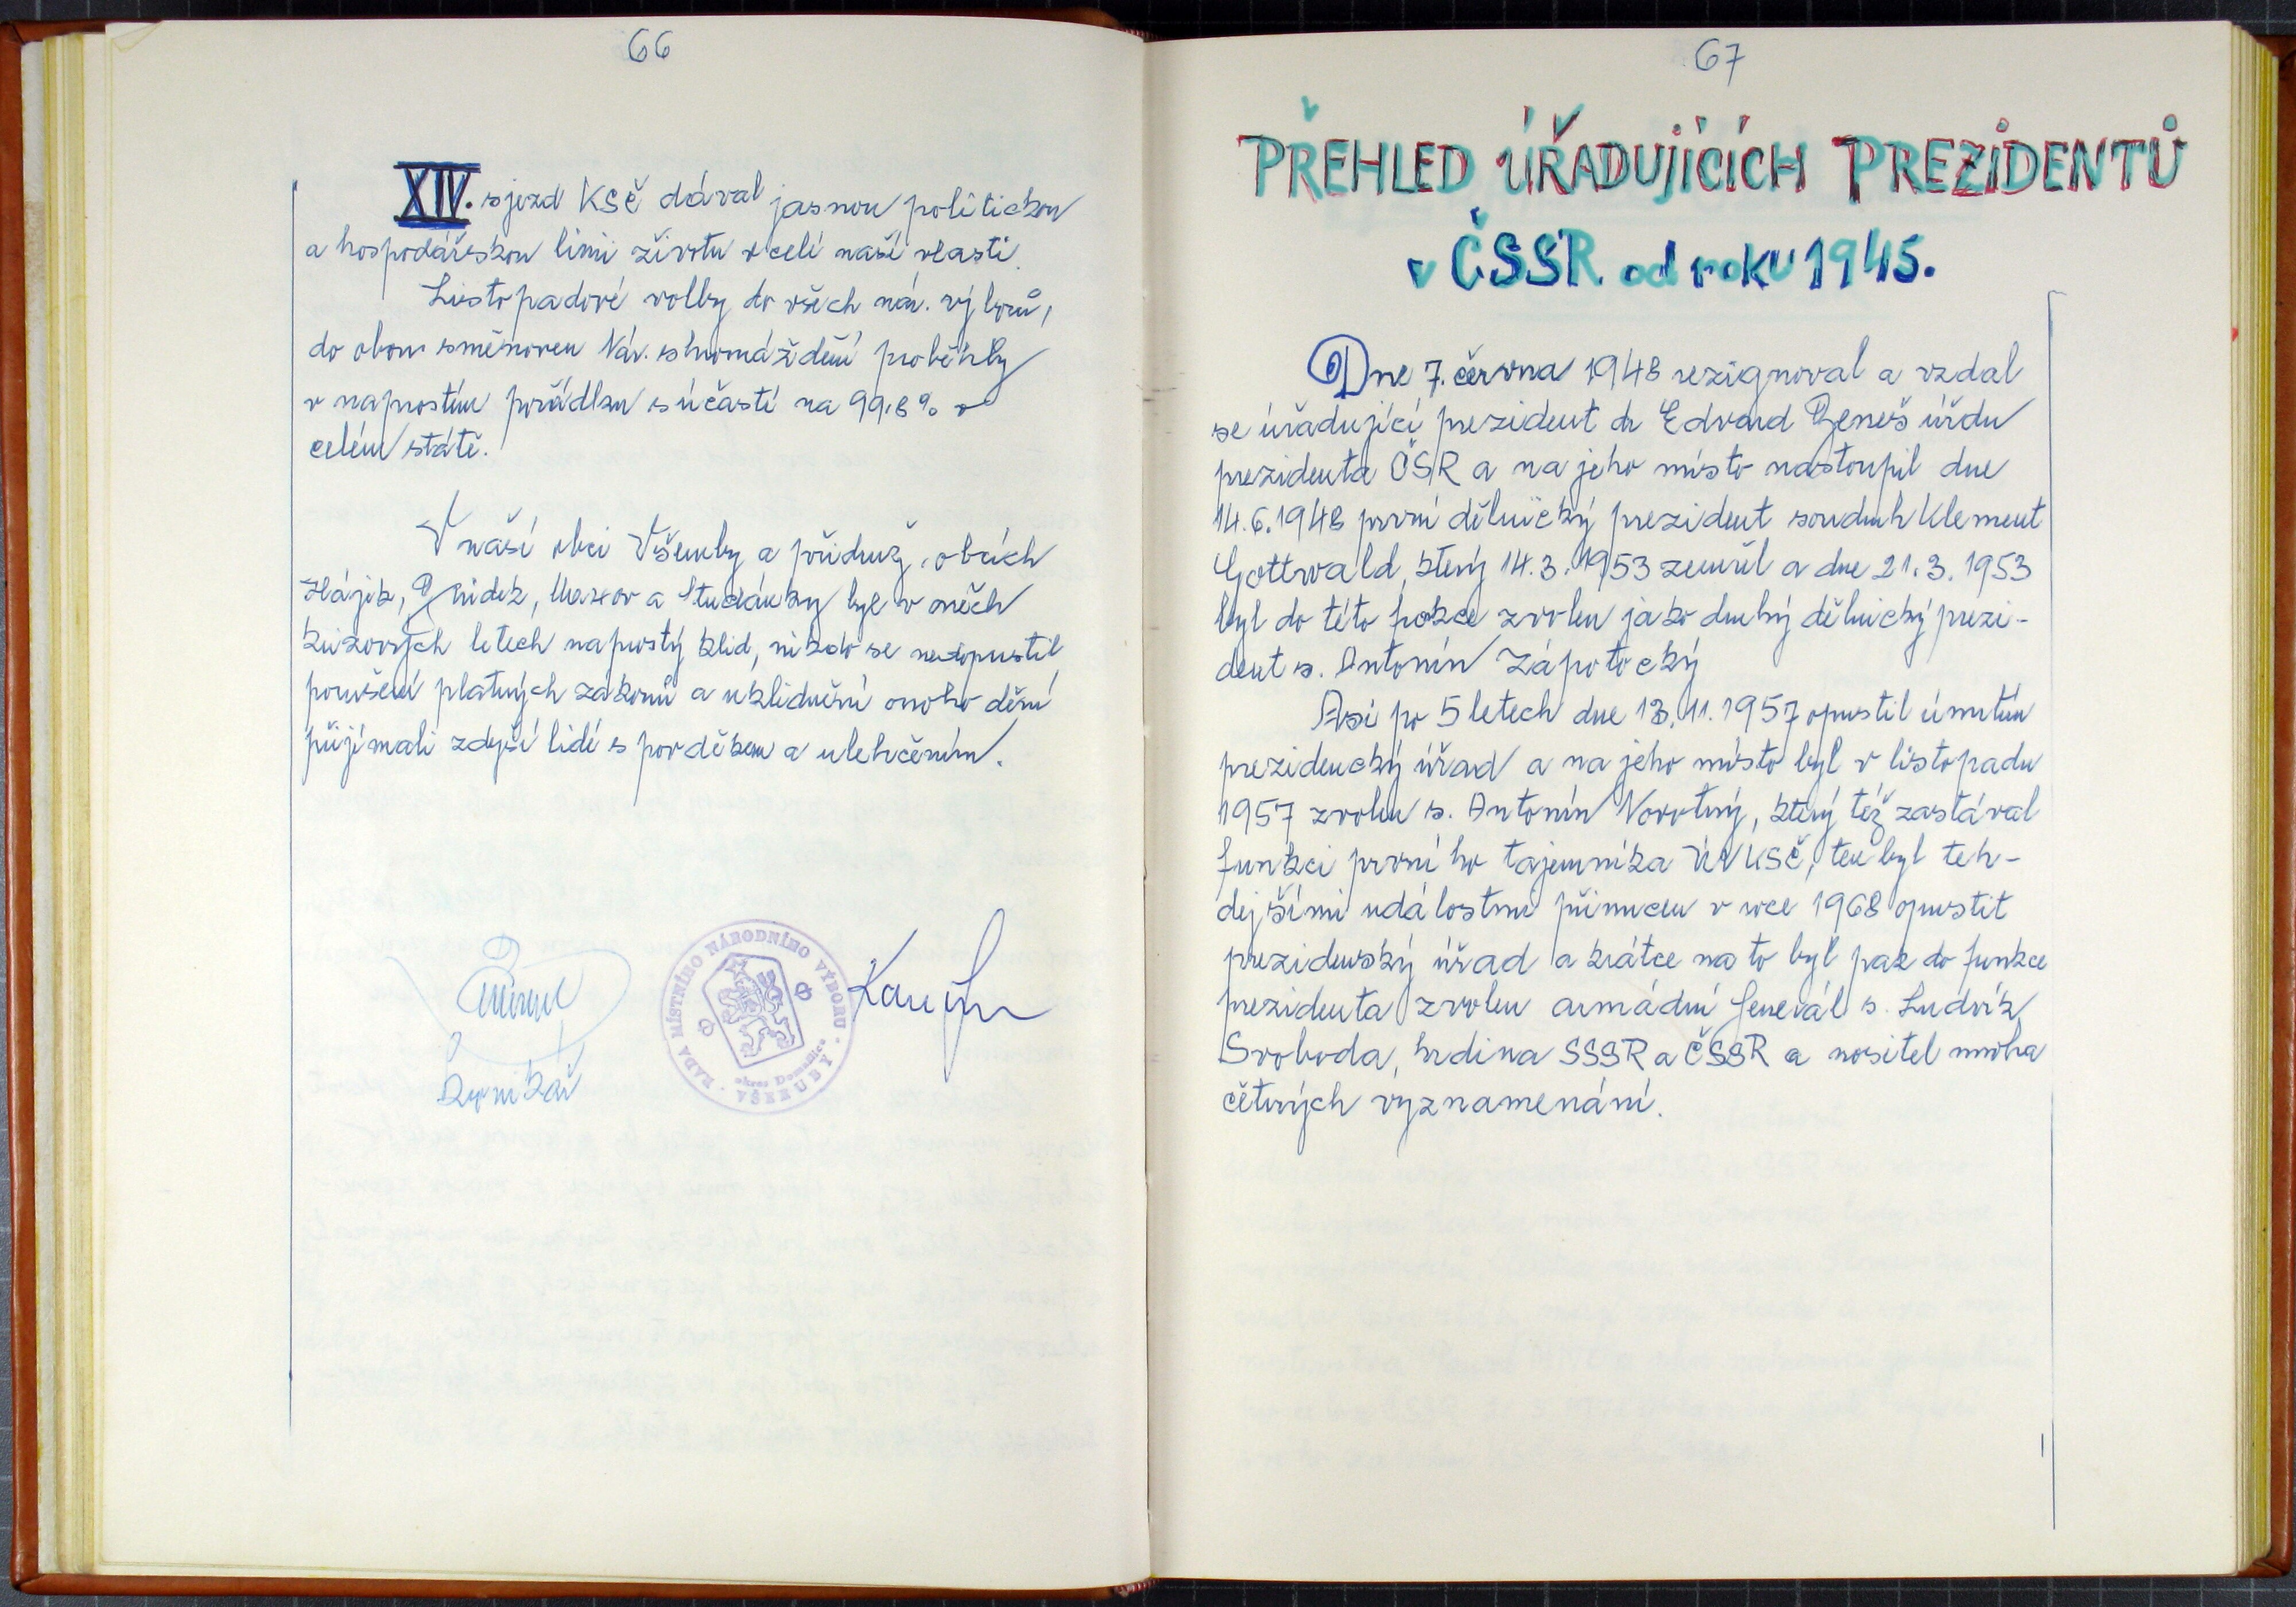 66
XIV. sjezd KSČ dával jasnou politickou
a hospodářskou linii životu v celé naší vlasti.
Listopadové volby do všech nár. výborů,
do obou sněmoven Nár. shromáždění proběhly
v naprostém pořádku s účastí na 99.8% v
celém státě.
V naší obci Všeruby a přidruž. obcích
Hájek, Brůdek, Maxov a Studánky byl v oněch
krizových letech naprostý klid, nikdo se nedopustil
porušení platných zákonů a uklidnění onoho dění
přijímali zdejší lidé s povděkem a ulehčením.
RADA MÍSTNÍHO NÁRODNÍHO VÝBORU
okres Domažlice
VŠERUBY
67
PŘEHLED ÚŘADUJÍCÍCH PREZIDENTŮ
v ČSSR. od roku 1945.
Dne 7. června 1948 rezignoval a vzdal
se úřadující prezident dr Edvard Beneš úřadu
prezidenta ČSR a na jeho místo nastoupil dne
14.6.1948 první dělnický prezident soudruh Klement
Gottwald, který 14.3.1953 zemřel a dne 21.3.1953
byl do této fokce zvolen jako druhý dělnický prezi-
dent s. Antonín Zápotocký
Asi po 5 letech dne 13.11.1957 opustil úmrtím
prezidencký úřad a na jeho místo byl v listopadu
1957 zvolen s. Antonín Novotný, který též zastával
funkci prvního tajemníka ÚV KSČ, ten byl teh-
dejšími událostmi přinucen v roce 1968 opustit
prezidenský úřad a krátce na to byl pak do funkce
prezidenta zvolen armádní generál s. Ludvík
Svoboda, hrdina SSSR a ČSSR a nositel mnoha
četných vyznamenání.